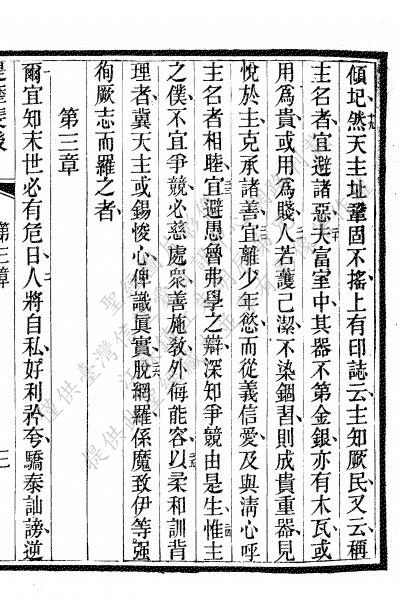 傾圮然天主址鞏固不搖上有印誌云主知厥民又云稱
主名者宜避諸惡夫富室中其器不第金銀亦有木瓦或
用爲貴或用爲賤人若護己潔不染錮習則成貴重器見
悅於主克承諸善宜離少年慾而從義信愛及與淸心呼
主名者相睦宜避愚魯弗學之辯深知爭競由是生惟主
之僕不宜爭競必慈處衆善施敎外侮能容以柔和訓背
理者冀天主或錫悛心俾識眞實脫網羅係魔致伊等强
徇厥志而羅之者
第三章
爾宜知末世必有危日人將自私好利矜夸驕泰訕謗逆
第三章